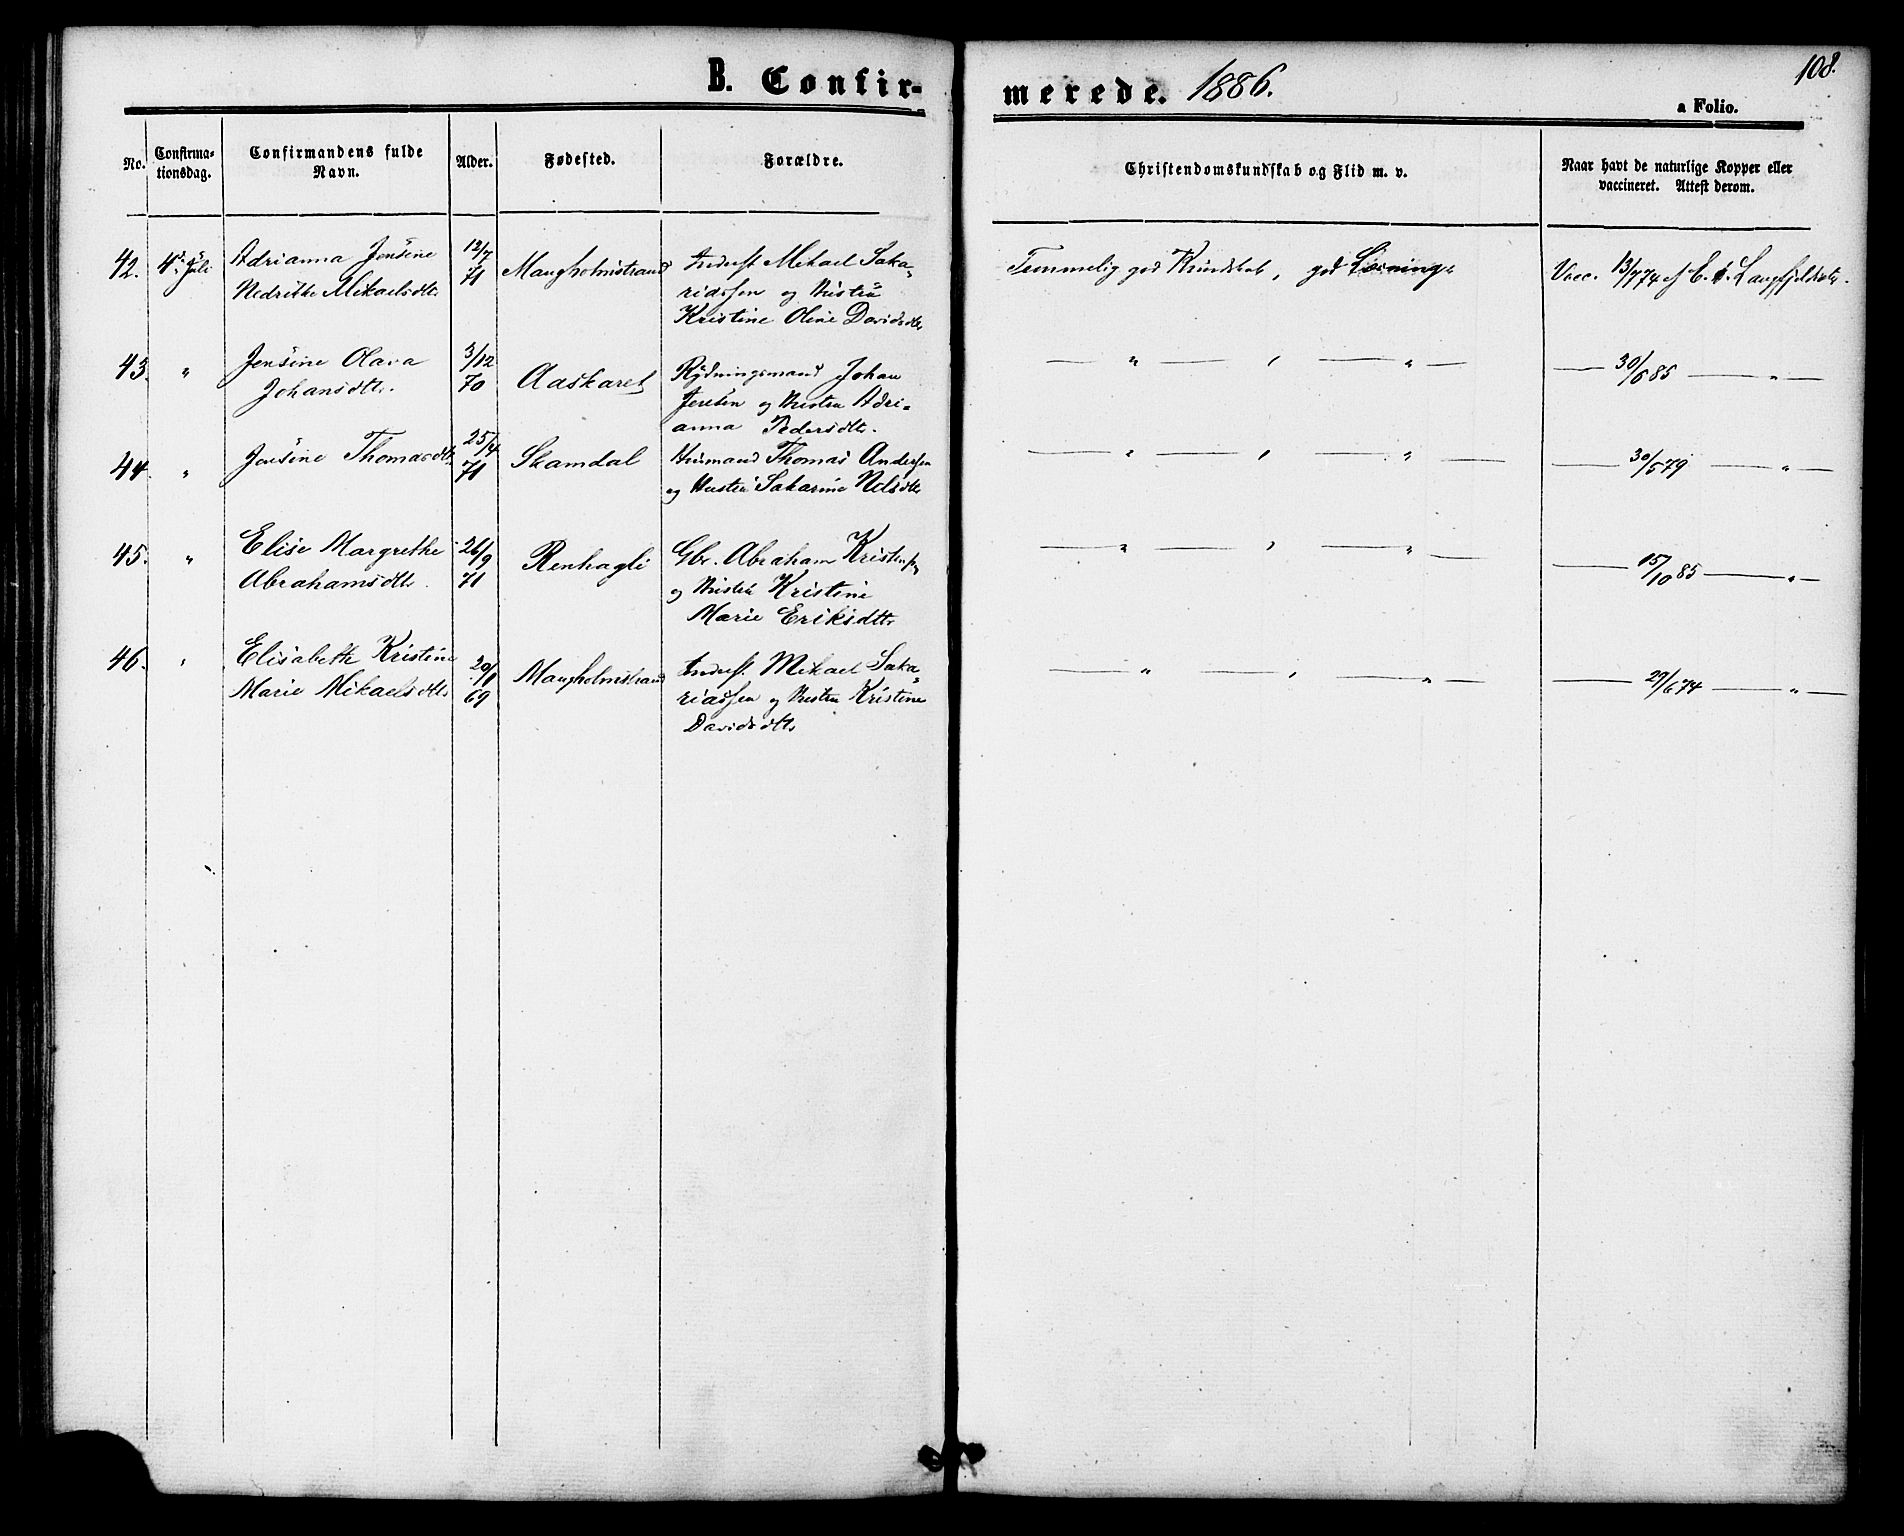 B. Confir-
merede. 1886.
108.
a Folio.
No.
Confirma-
tionsdag.
Confirmandens fulde
Navn.
Alder.
Fødested.
Forældre.
Christendomskundskab og Flid m. v.
Naar havt de naturlige Kopper eller
vaccineret. Attest derom.
42. 4de Juli Adrianna Jensine 12/7 Mangholmstrand Inderst Mikael Saka= Temmelig god Kundskab, god Læsning. Vacc. 13/7 74 af
Mikaelsdtr 71 riassen og Hustru
Kristine Oline Davidsdtr
43. " Jensine Olava 3/12 Aaskaret Rydningsmand Johan — " — , — " — — 30/6 85 — " —
Johansdtr. 70 og Hustru Adri=
anna Pedersdtr.
44. " Jensine Thomasdtr 25/4 Skamdal Husmand Thomas Andersen — " — , — " — — 30/5 79 — " —
71 og Hustru Sakarine Nelsdtr
45. " Elise Margrethe 26/9 Renhagli Gbr. Abraham Kristensen — " — , — " — — 15/10 85 — " —
Abrahamsdtr. 71 og Hustru Kristine
Marie Eriksdtr
46. " Elisabeth Kristine 20/1 Mangholmstrand Inderst. Mikael Saka= — " — , — " — — 29/6 74 — " —
Marie Mikaelsdtr 69 riassen og Hustru Kristine
Davidsdtr